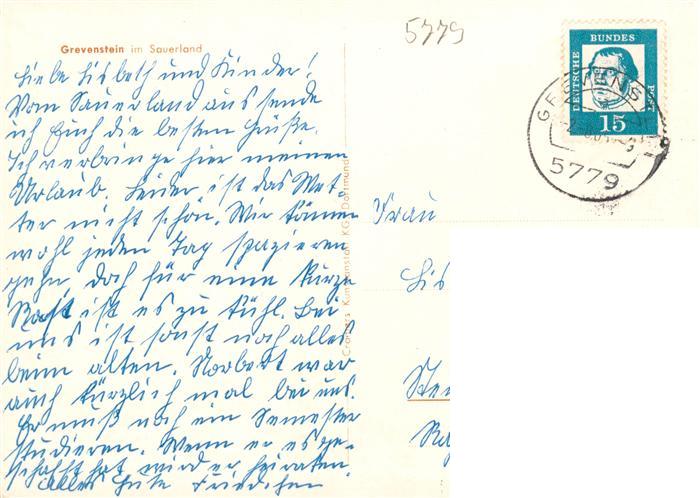 5779
Grevenstein im Sauerland
Liebe Lisbeth und Kinder!
Vom Sauerland aus sende
ich Euch die besten Grüße.
Ich verbringe hier meinen
Urlaub. Leider ist das Wet-
ter nicht schön. Wir können
wohl jeden Tag spazieren
gehn, doch für eine kurze
Rast ist es zu kühl. Bei
uns ist sonst noch alles
beim alten. Norbert war
auch kürzlich mal bei uns.
Er muß noch ein Semester
studieren. Wenn er es ge-
schafft hat wird er heiraten.
Alles Gute Friedchen
Cramers Kunstanstalt KG, Dortmund
DEUTSCHE BUNDESPOST
15
5779
Frau
Lis